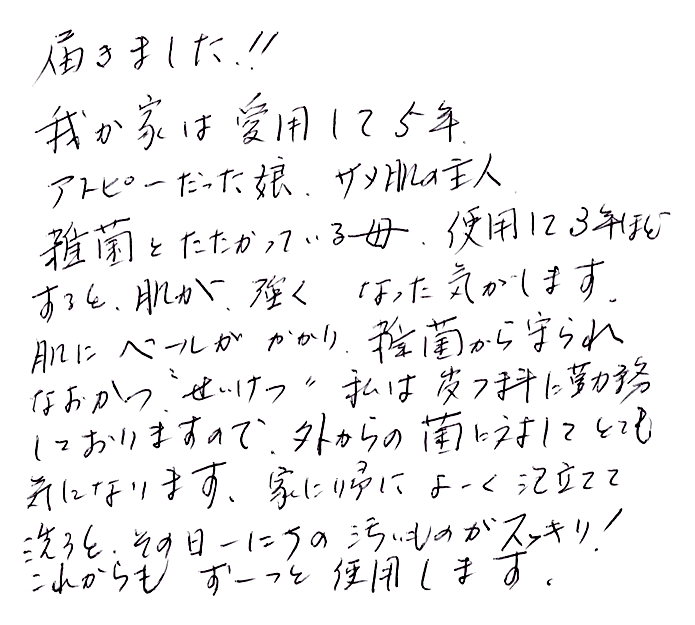 届きました!!
我が家は愛用して5年
アトピーだった娘、サメ肌の主人
雑菌とたたかっている母、使用して3年ほど
すると、肌が、強く なった気がします。
肌にベールがかかり、雑菌から守られ
なおかつ"せいけつ" 私は皮フ科に勤務
しておりますので、外からの菌に対してとても
気になります。家に帰によーく泡立てて
洗うと、その日一にちの汚いものがスッキリ!
これからも ずーっと使用します。